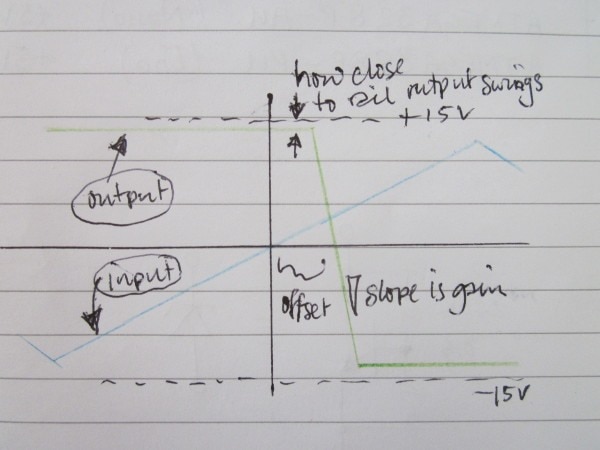 how close
to rail output swings
+15V
output
input
offset
slope is gain
-15V